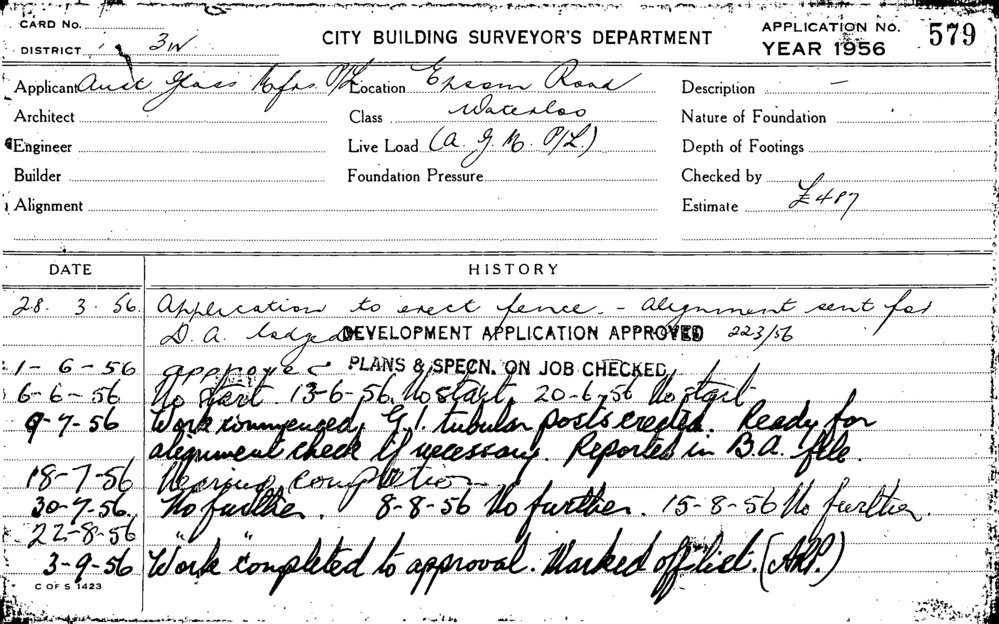 CARD No.
DISTRICT 3W
CITY BUILDING SURVEYOR'S DEPARTMENT
APPLICATION No. 579
YEAR 1956
Applicant Aust Glass Mfrs. P/L Location Epsom Road Description —
Architect Class Waterloo Nature of Foundation
Engineer Live Load (A. G. M. P/L.) Depth of Footings
Builder Foundation Pressure Checked by
Alignment Estimate £487
DATE HISTORY
28. 3. 56. Application to erect fence. - Alignment sent for
D.A. lodged DEVELOPMENT APPLICATION APPROVED 223/56
1-6-56 approved PLANS & SPECN. ON JOB CHECKED
6-6-56 No start. 13-6-56. No start. 20-6-56 No start
9-7-56 Work commenced, G.I. tubular posts erected. Ready for
alignment check if necessary. Reported in B.A. file.
18-7-56 Nearing completion
30-7-56. No further. 8-8-56 No further. 15-8-56 No further.
22-8-56 " "
3-9-56 Work completed to approval. Marked off list.
C OF S 1423